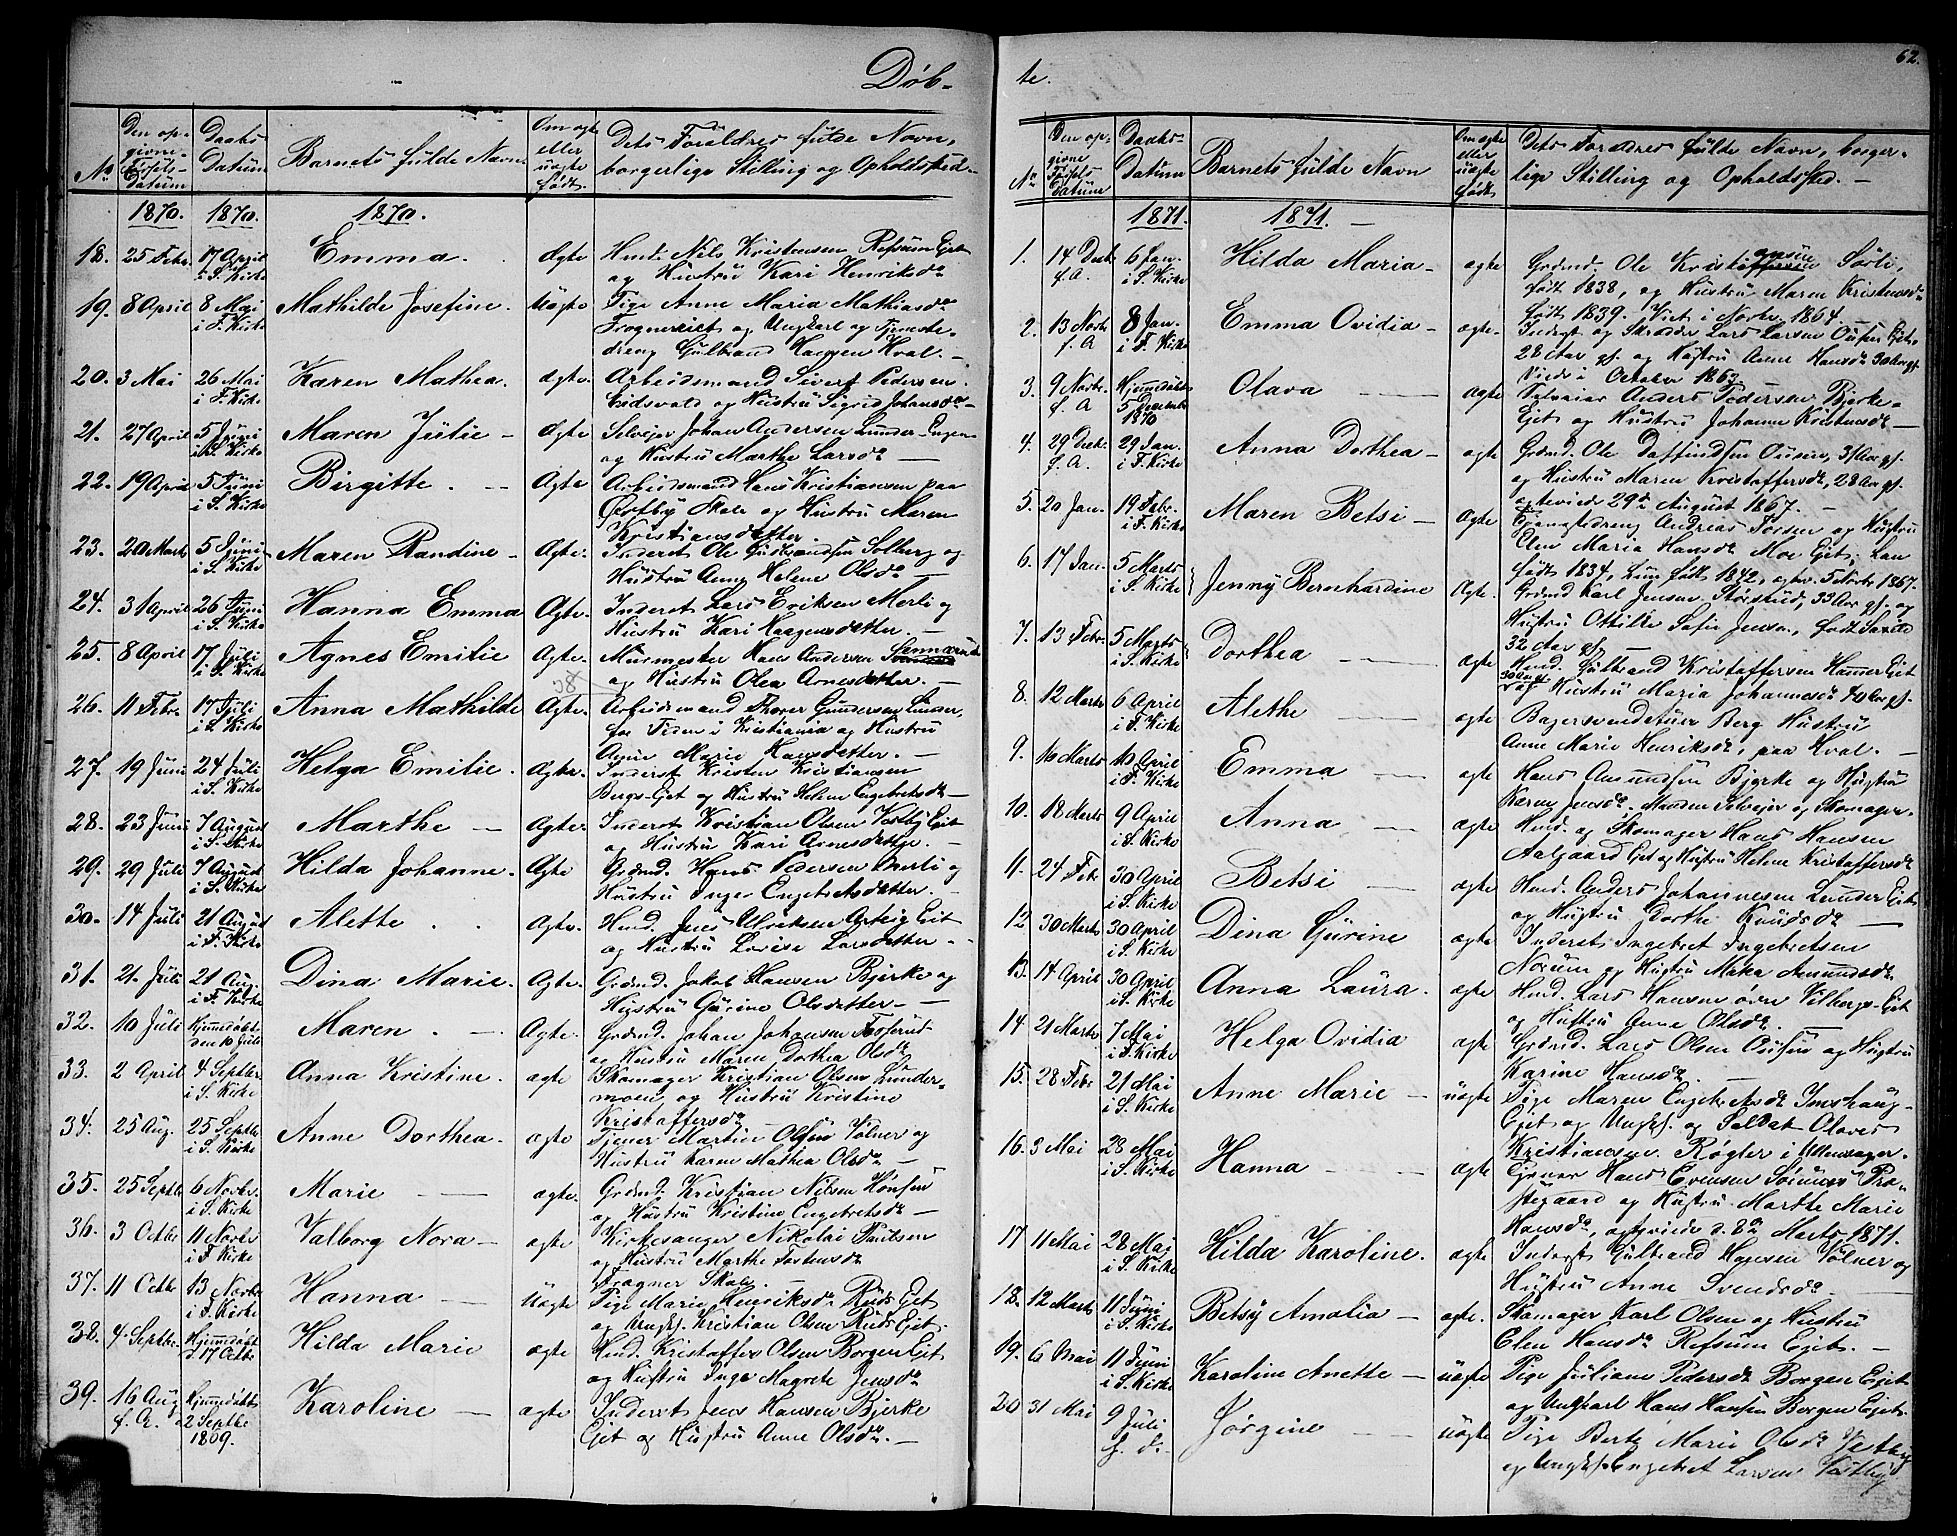 Døb-
No
Den op-
givne
Fødsels-
Datum
Daabs
Datum
Barnets fulde Navn
Om ægte
eller
uægte
født
Dets Forældres fulde Navn,
borgerlige Stilling og Opholdssted.
1870. 1870. 1870.
18. 25 Febr. 17 April i S. Kirke Emma. Ægte Huusm. Nils Kristensen Refsum Eiet
og Hustru Kari Henriksdr
19. 8 April 8 Mai i F. Kirke Mathilde Josefine. Uægte Pige Anne Maria Mathiasdr
Fragnereiet og Ungkarl og Tjeneste-
dreng Gulbrand Hansen Hval.
20. 3 Mai 26 Mai i F. Kirke Karen Mathea. ægte. Arbeidsmand Sivert Pedersen
Eidsvold og Hustru Sigrid Johansdr
21. 27 April 5 Juni i S. Kirke Maren Julie Ægte Selvejer Johan Andersen Lunder-Engen
og Hustru Marthe Larsdr
22. 19 April 5 Juni i S. Kirke Birgitte. Ægte Arbeidsmand Hans Kristiansen paa
Skole og Hustru Maren
Kristiansdatter.
23. 20 Marts 5 Juni i S. Kirke Maren Randine Ægte. Inderst Ole Gulbrandsen Solberg og
Hustru Anne Helene Olsdr
24. 31 April 26 Juni i S. Kirke Hanna Emma Ægte. Inderst Lars Eriksen Merli og
Hustru Kari Haagensdatter.
25. 8 April 17 Juli i S. Kirke Agnes Emilie Ægte. Murmester Hans Andersen
og Hustru Olea Arnesdatter.
26. 11 Febr. 17 Juli i S. Kirke Anna Mathilde Ægte. Arbeidsmand Thorer Gundersen Lunder,
for Tiden i Kristiania og Hustru
Anne Marie Hansdatter.
27. 19 Juni 24 Juli i S. Kirke Helga Emilie. Ægte. Inderst Kristen Kristiansen
Bergs-Eiet og Hustru Helene Engebretsdr
28. 23 Juni 7 August i S. Kirke Marthe Ægte. Inderst Kristian Olsen Vestby Eiet
og Hustru Kari Arnesdatter.
29. 29 Juli 7 August i S. Kirke Hilda Johanne. Ægte Grdmd. Hans Pedersen Merli og
Hustru Inger Engebretsdatter.
30. 14 Juli 21 August i F. Kirke Alette. Ægte. Husmd. Jens Ulriksen Arteig Eiet
og Hustru Lovise Larsdatter
31. 21. Juli 21 Aug. i F. Kirke Dina Marie. Ægte. Grdmd. Jakob Hansen Bjerke og
Hustru Gurine Olsdatter.
32. 10 Juli Hjemmedøbt den 10 Juli Maren. Ægte. Grdmd. Johan Johansen Fosserud
og Hustru Maren Dorthea Olsdr
33. 2 April 4 Septbr. i S. Kirke Anna Kristine. ægte Skomager Kristian Olsen Lunder-
moen og Hustru Kristine
Kristoffersdr
34. 25 Aug. 25 Septbr i S. Kirke Anne Dorthea. ægte Tjener Martin Olsen Vølner og
Hustru Karen Mathea Olsdr
35. 25 Septbr 6 Novbr. i S. Kirke Marie ægte. Grdmd. Kristian Nilsen Hønsen
og Hustru Kristine Engebretsdr
36. 3 Octbr 11 Novbr i F. Kirke Valborg Nora ægte Kirkesanger Nikolai Paulsen
og Hustru Marthe Torstensdr
Fragner Skole.
37. 11 Octbr 13 Novbr i F. Kirke Hanna Uægte Pige Marie Henriksdr Ruds Eiet
og Ungkf. Kristian Olsen Ruds Eiet.
38. 4 Septbr. Hjemmedøbt d. 17 Octbr Hilda Marie ægte Husmd. Kristoffer Olsen Borgen Eiet
og Hustru Inge Magrete Jensdr
39. 16 Aug. f. A. Hjemmedøbt 2 Septbr 1869. Karoline ægte Inderst Jens Hansen Bjerke
Eiet og Hustru Anne Olsdr.
te.
62.
No
Den op-
givne
Fødsels
Datum
Daabs-
Datum
Barnets fulde Navn
Om ægte
eller
uægte
født
Dets Forældres fulde Navn, borger-
lige Stilling og Opholdssted.
1871. 1871.
1. 14 Decbr f. A 6 Jan. i S. Kirke Hilda Maria ægte Grdmd. Ole Sørli,
født 1838, og Hustru Maren Kristensdr
født 1839. Viet i Novbr. 1864.
2. 13 Novbr f. A 8 Jan. i F. Kirke Emma Ovidia ægte. Inderst og Skrædder Lars Larsen Ousen Eiet,
28 Aar gl. og Hustru Anne Hansdr 30 Aar gl.
Viede i October 1863.
3. 9 Novbr. f. A Hjemmedøbt 5 December 1870 Olava ægte Selveier Anders Pedersen Bjerke-
Eiet og Hustru Johanne Kristensdr
4. 29 Decbr. f. A. 29 Jan. i F. Kirke Anna Dorthea ægte Grdmd. Ole Daffindsen Ousen, 31 Aar gl.
og Hustru Maren Kristoffersdr, 28 Aar gl.
egteviede 29de August 1867.
5. 20 Jan. 19 Febr. i F. Kirke Maren Betsi Ægte Tjenestedreng Andreas og Hustru
Elen Maria Hansdr Moe Eiet, han
født 1834, hun født 1842, egtev. 5 Novbr 1867.
6. 17 Jan. 5 Marts i S. Kirke Jenny Bernhardine Ægte. Grdmd Karl Jensen Storsrud, 33 Aar gl. og
Hustru Ottilie Sofie Jensen, født
32 Aar gl.
7. 13 Febr. 5 Marts i S. Kirke Dorthea ægte Husmd. Gulbrand Kristoffersen Hammer Eiet
og Hustru Maria Johannesdr 40 Aar gl.
8. 12 Marts 6 April i F. Kirke Alethe ægte Bagersvend Berg Hustru
Anne Marie Henriksdr, paa Hval.
9. 10 Marts 10 April i F. Kirke Emma ægte Hans Amundsen Bjerke og Hustru
Karen Jensdr. Manden Selvejer og Skomager.
10. 18 Marts 9 April i S. Kirke Anna ægte Husmd. og Skomager Hans Hansen
Aalgaard Eiet og Hustru Helene Kristoffersdr
11. 24 Febr 30 April i S. Kirke Betsi ægte Husmd. Anders Johannesen Lunder Eiet
og Hustru Dorthe Knudsdr
12 30 Marts 30 April i S. Kirke Dina Gurine ægte Inderst Ingebret Ingebretsen
Norum og Hustru Maka Amundsdr
13. 14 April 30 April i S. Kirke Anna Laura. ægte Husmd. Lars Hansen øvre Vilbergs-Eiet
og Hustru Anne Olsdr.
14. 21 Marts 7 Mai i F. Kirke Helga Ovidia ægte Grdmd. Lars Olsen Ousen og Hustru
Karine Hansdr.
15. 28 Febr 21 Mai i S. Kirke Anne Marie uægte Pige Maren Engebretsdr Imshaug-
Eiet og Ungkf. og Soldat Olaves
Kristiansen. Røgler i Ullensager.
16. 3 Mai 28 Mai i S. Kirke Hanna ægte Tjener Hans Evensen Sørum Præ-
stegaard og Hustru Marthe Marie
Hansdr, egteviede d. 8de Marts 1871.
17 11 Mai 28 Mai i S. Kirke Hilda Karoline. ægte Inderst Gulbrand Hansen Vølner og
Hustru Anne Svendsdr
18. 12 Marts 11 Juni i S. Kirke Betsy Amalia ægte. Skomager Karl Olsen og Hustru
Elen Hansdr Refsum Eiet.
19. 6 Mai 11 Juni i S. Kirke Karoline Anette uægte Pige Juliane Pedersdr Borgen Eiet
og Ungkarl Hans Hansen Borgen Eiet.
20 31 Mai 9 Juli f. d. Jørgine uægte Pige Berte Marie Olsdr Vestby
og Ungkf. Engebret Larsen Vestby